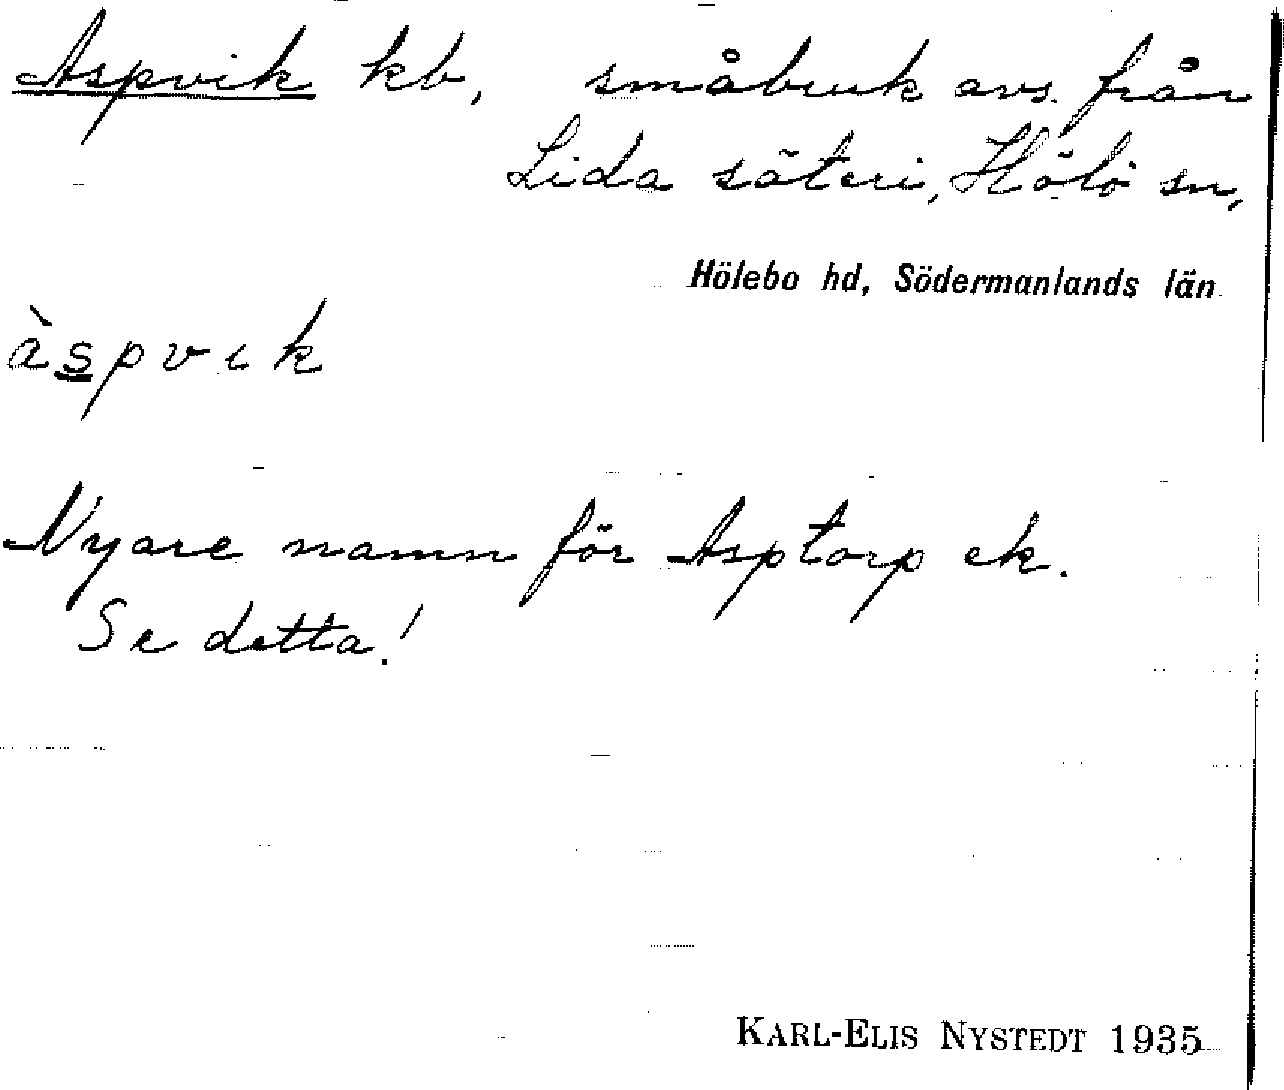 Aspvik kb, småbruk avs. från
Lida säteri, Hölö sn,
Hölebo hd, Södermanlands län
àspvik
Nyare namn för Asptorp ek.
Se detta!
KARL-ELIS NYSTEDT 1935